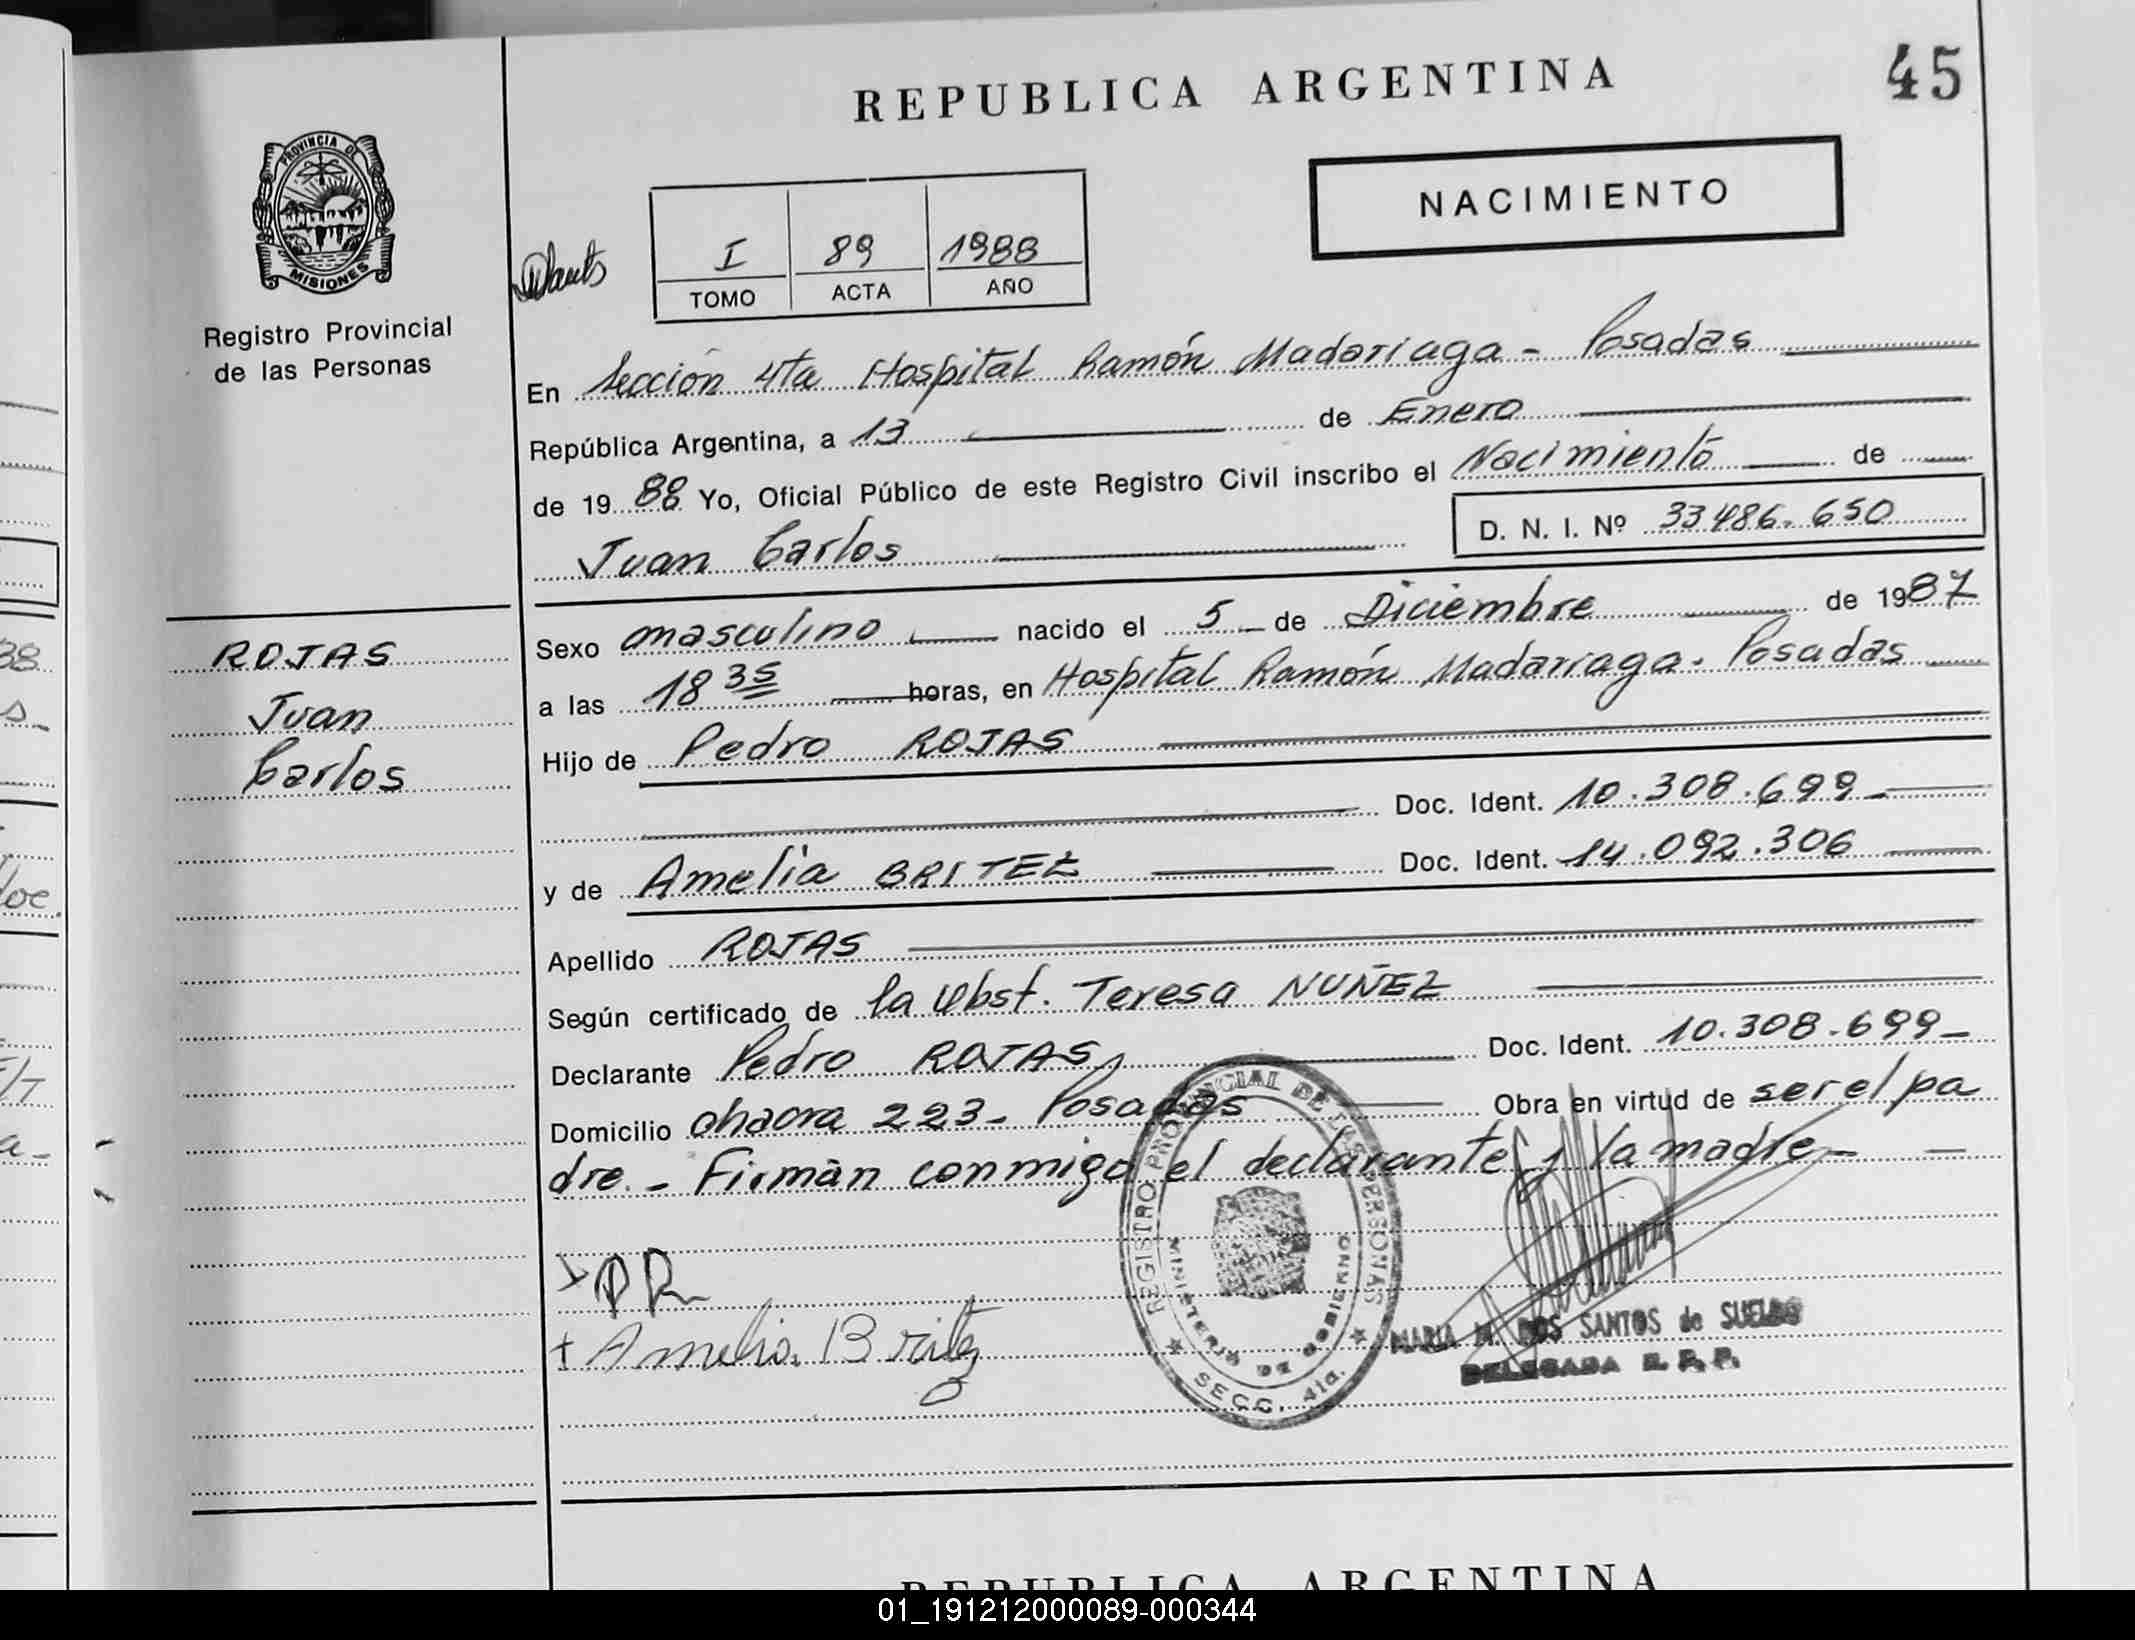 REPUBLICA ARGENTINA
45
PROVINCIA DE
MISIONES
Registro Provincial
de las Personas
NACIMIENTO
I 89 1988
TOMO ACTA AÑO
En Sección 4ta Hospital Ramón Madariaga - Posadas
República Argentina, a 13 de Enero
de 19 88 Yo, Oficial Público de este Registro Civil inscribo el Nacimiento de
Juan Carlos D. N. I. Nº 33486.650
ROJAS
Juan
Carlos
Sexo masculino nacido el 5 de Diciembre de 1987
a las 18 35 horas, en Hospital Ramón Madariaga. Posadas
Hijo de Pedro ROJAS
Doc. Ident. 10.308.699
y de Amelia BRITEZ Doc. Ident. 14.092.306
Apellido ROJAS
Según certificado de la Obst. Teresa NUÑEZ
Declarante Pedro ROJAS Doc. Ident. 10.308.699
Domicilio chacra 223 - Posadas Obra en virtud de ser el pa
dre. - Firmàn conmigo el declarante y la madre -
PR
Amelia Britz
REGISTRO PROVINCIAL DE LAS PERSONAS
MINISTERIO DE GOBIERNO
SECC. 4ta.
MARIA M. DOS SANTOS de SUELDO
DELEGADA R. P. P.
REPUBLICA ARGENTINA
01_191212000089-000344